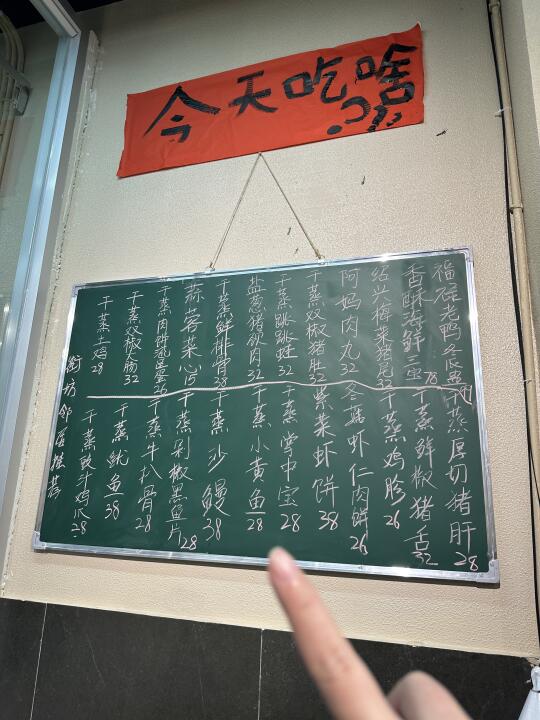 今天吃啥??
福禄老鸭冬瓜
香酥海鲜三宝78
绍兴榨菜猪尾32
阿妈肉丸32
干蒸双椒猪肚32
干蒸跳跳蛙32
盐葱猪颈肉32
干蒸鲜排骨38
蒜蓉菜心15
干蒸肉饼咸蛋26
干蒸双椒大肠32
干蒸土鸡28
街坊邻居推荐
干蒸厚切猪肝28
干蒸鲜椒猪舌32
干蒸鸡胗26
冬菇虾仁肉饼26
紫菜虾饼38
干蒸掌中宝28
干蒸小黄鱼28
干蒸沙鳗38
干蒸剁椒黑鱼片28
干蒸牛扒骨28
干蒸鱿鱼38
干蒸豉汁鸡爪28